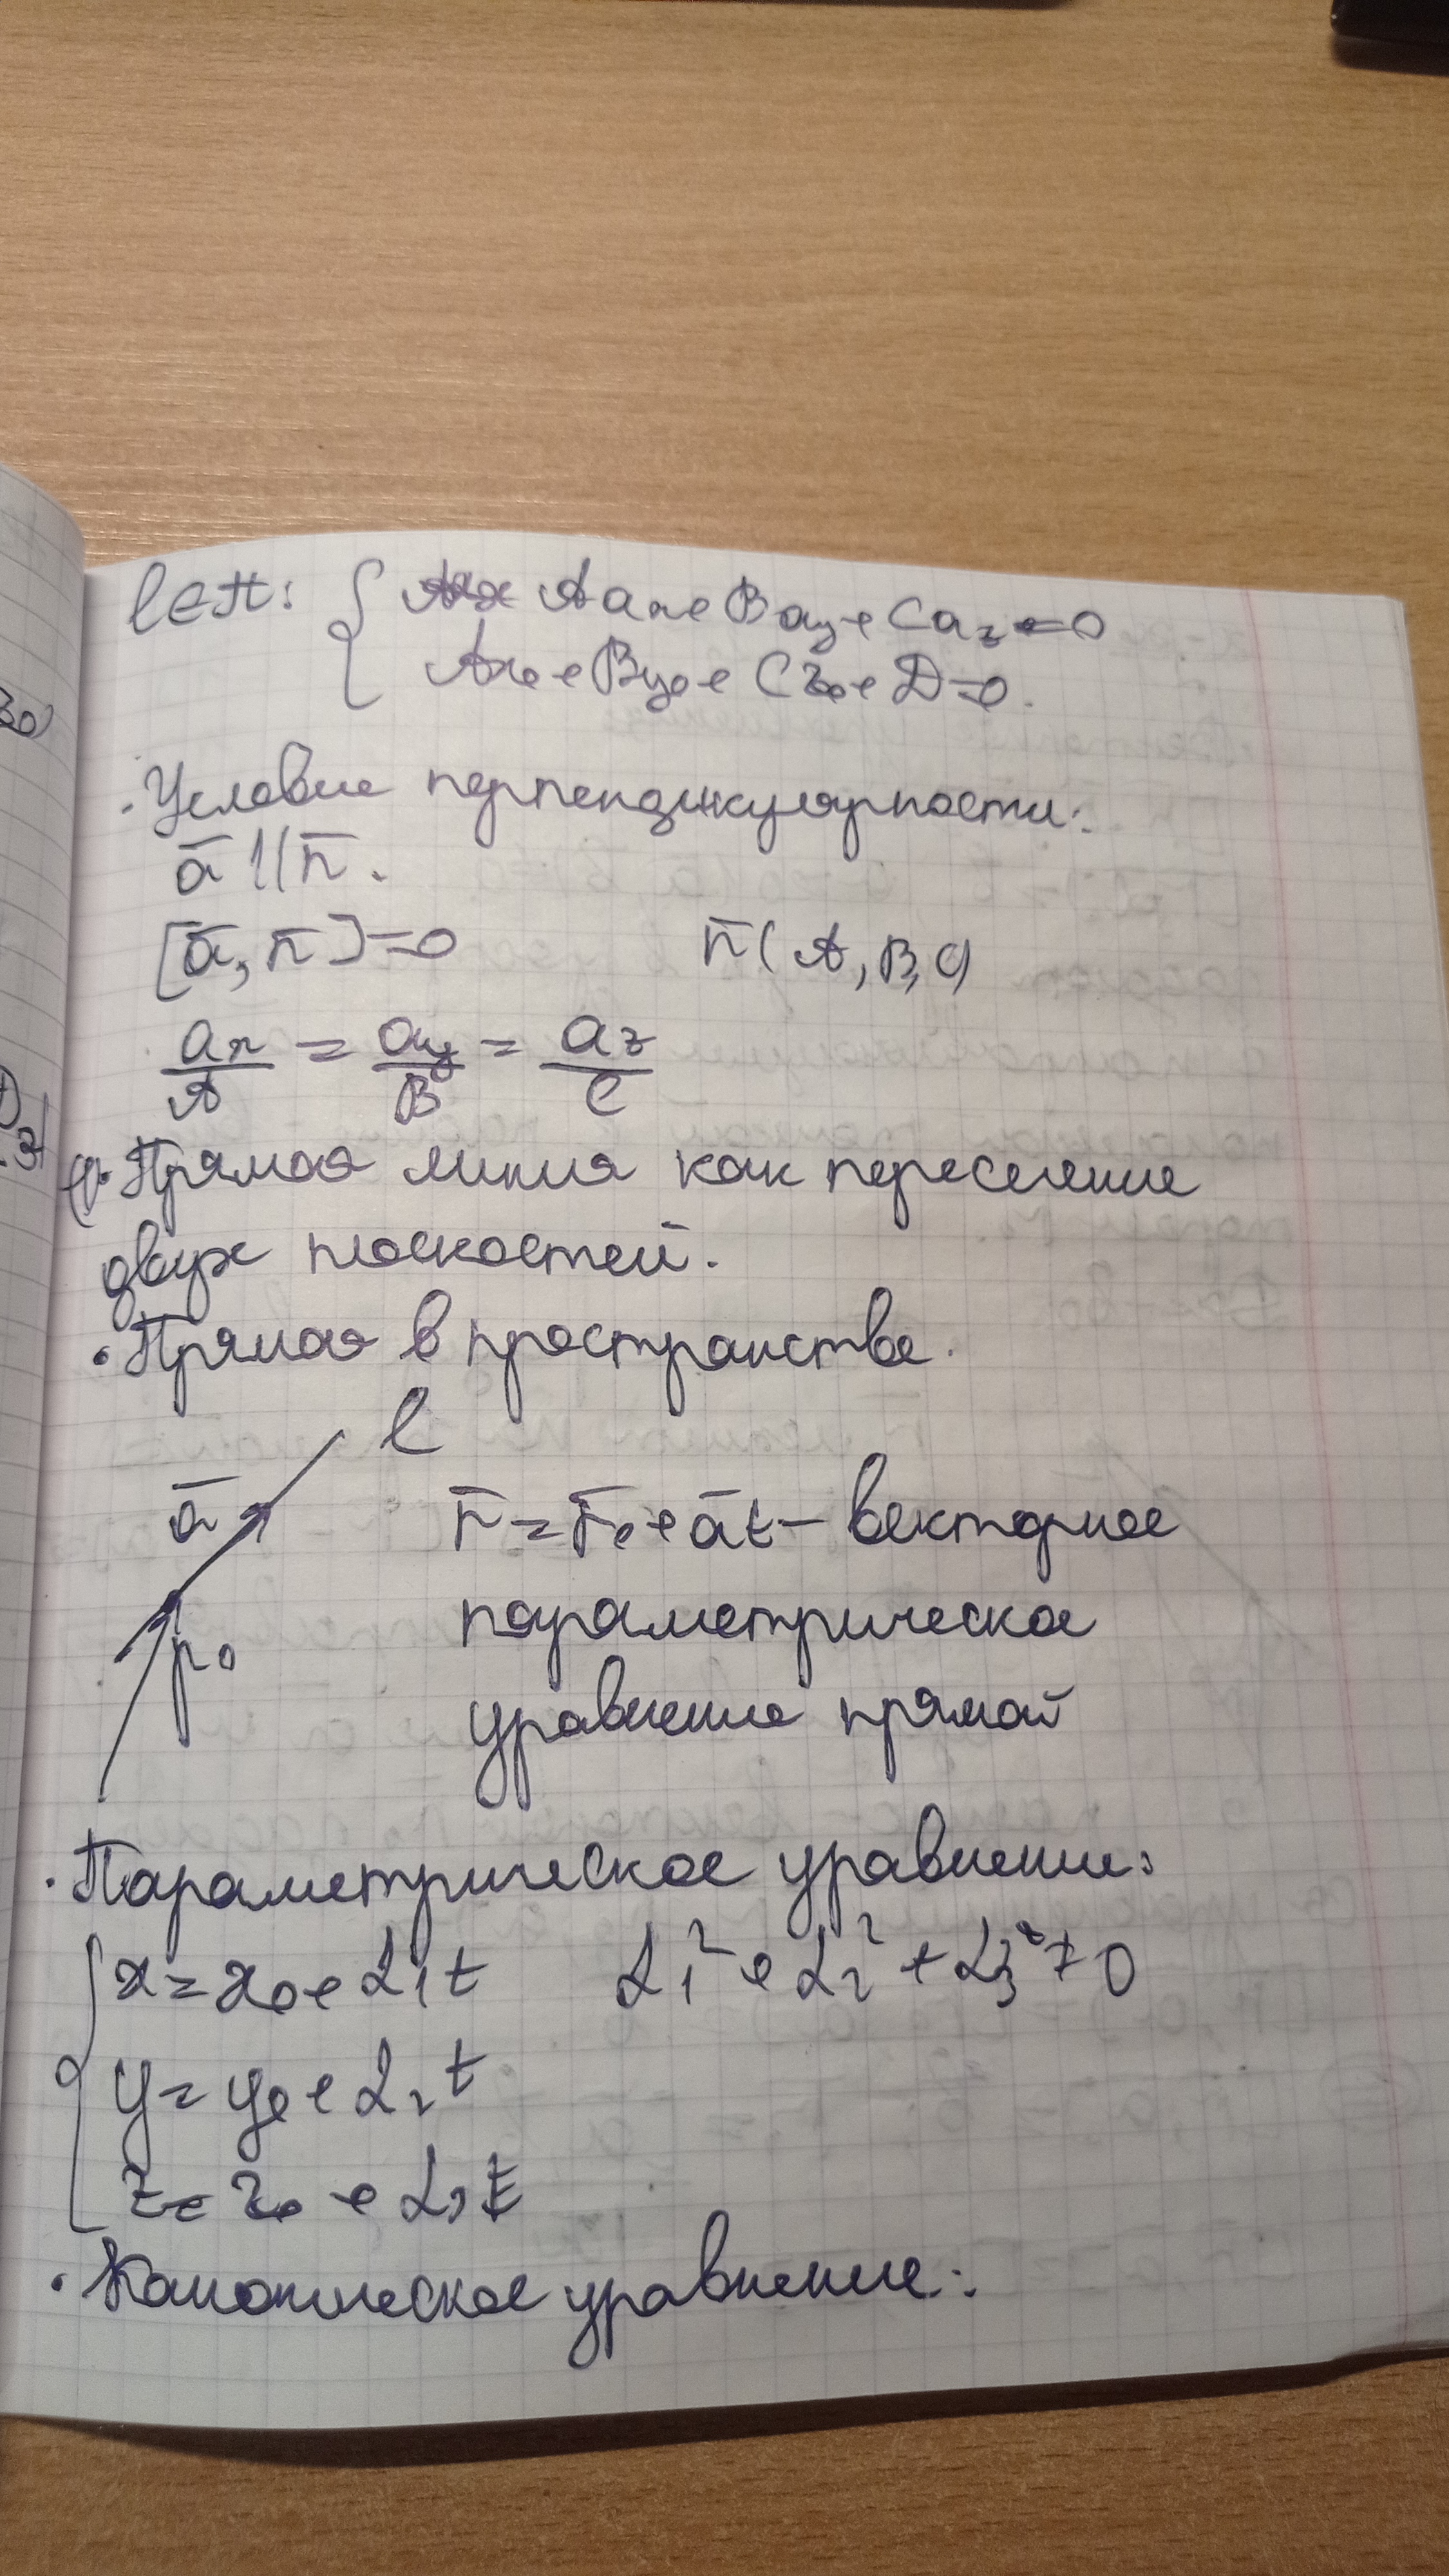 l∈π: { Aaₓ + Ba_y + Ca_z = 0
Ax₀ + By₀ + Cz₀ + D = 0.
· Условие перпендикулярности:
ā || n̄.
[ā, n̄] = 0 n̄(A, B, C)
aₓ/A = a_y/B = a_z/C
Прямая линия как пересечение
двух плоскостей.
• Прямая в пространстве.
l
ā r̄ = r̄₀ + āt – векторное
r₀ параметрическое
уравнение прямой
· Параметрическое уравнение:
{ x = x₀ + α₁t α₁² + α₂² + α₃² ≠ 0
y = y₀ + α₂t
z = z₀ + α₃t
• Каноническое уравнение: